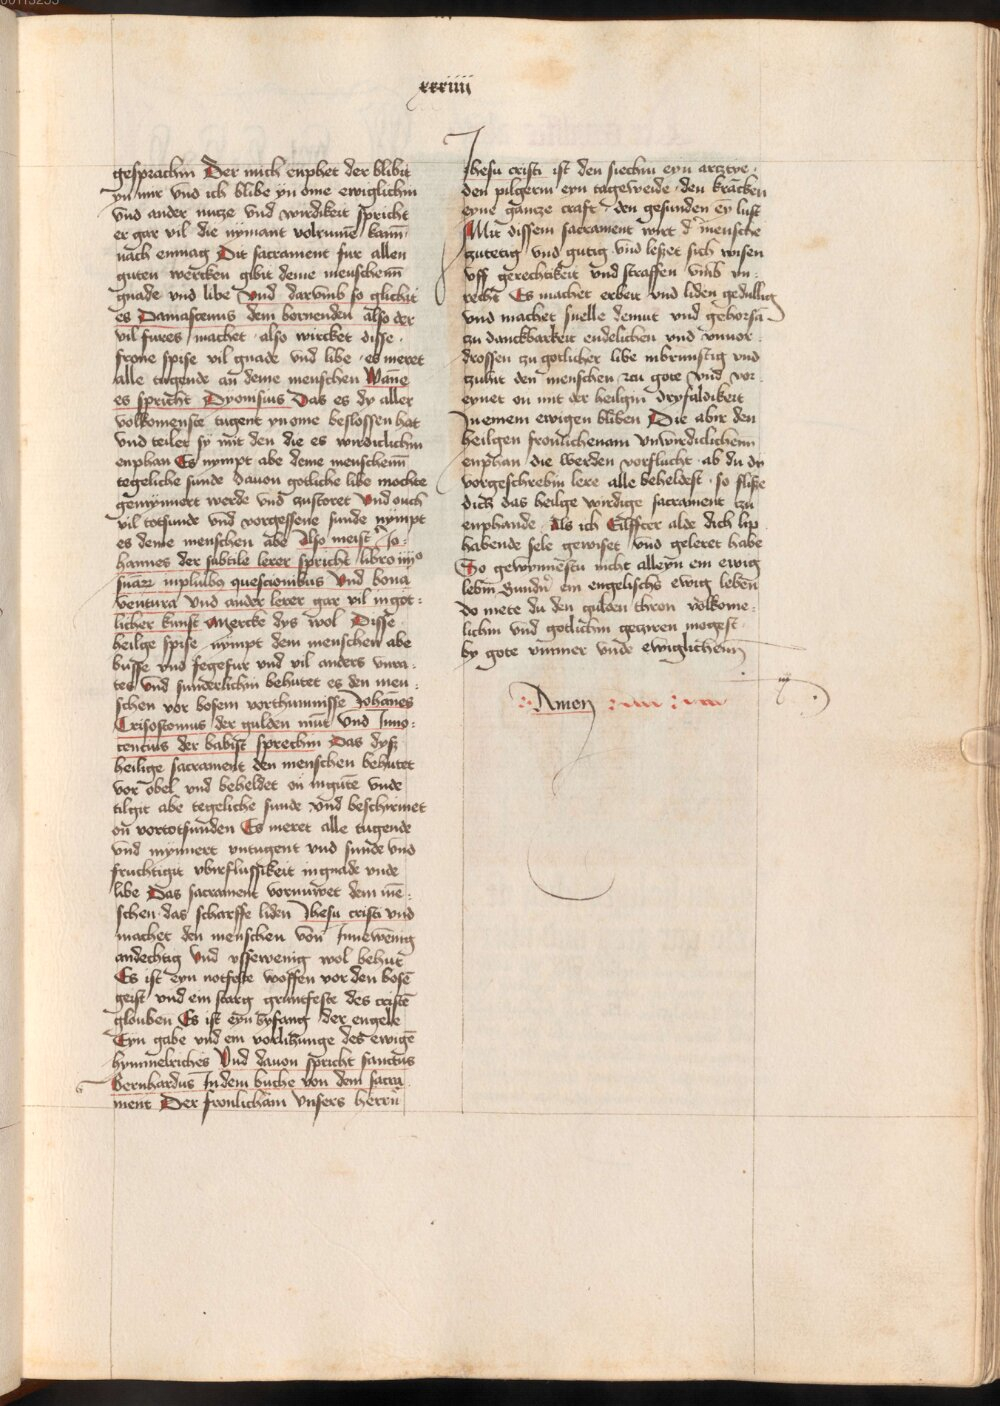 00113255
xxxiiii
gesprachin Der mich enphet der blibit
yn mir vnd ich blibe yn ome ewiglichin
vnd ander nucze vnd wirdikeit spricht
er gar vil die nymant volrumē kann
nach enmag Dit sacrament fur allen
guten wercken gibit deme menschenn
gnade vnd libe vnd darvmb so glichit
es Damascenus dem bornenden also der
vil fures machet · also wircket disse ·
frone spise vil gnade vnd libe · es meret
alle tugende an deme menschen Wāne
es spricht Dyonisius Das es dy aller
volkomenste tugent yn ome beslossen hat
vnd teilet sy mit den die es wirdiclichin
enphan Es nympt abe deme menschenn
tegeliche sunde dauon gotliche libe mochte
gemynnert werde vnd zustoret vnd ouch
vil totsunde vnd vorgessene sunde nympt
es deme menschen abe Also meistʾ Jo-
hannes der subtile lerer spricht libro iiijº
suarꝫ inplulbꝫ questionibus Vnd bona
ventura vnd ander lerer gar vil in got-
licher kunst Mercke dys wol Disse
heilge spise nympt dem menschen abe
busse vnd fegefur vnd vil anders vnra-
tes vnd sunderlichin behutet es den men-
schen vor bosem vorthumnisse Johānes
Crisostomus der gulden mūt vnd Jnno-
cencius der babist sprechin Das dysz
heilige sacrament den menschen behutet
vor obel vnd beheldet on ingute vnde
tilgit abe tegeliche sunde vnd beschirmet
on vor totsunden Es meret alle tugende
vnd mynnert vntugent vnd sunde vnd
fruchtigit vbirflussikeit in gnade vnde
libe Das sacrament vornuwet dem mē-
schen das scharffe liden Jhesu cristi vnd
machet den menschen von Jnnewenig
andechtig vnd vssewenig wol behut
Es ist eyn notfeste woffen vor den bosē
geist vnd ein starg gruntfeste des cristē
glouben Es ist eyn byfang der engele
Eyn gabe vnd ein vorlihunge des ewigē
hymmelriches Vnd dauon spricht sanctus
Bernhardus Jn dem buche von dem sacra-
ment Der fronlicham vnsers herrn
Jhesu cristi ist den siechin eyn arcztye ·
den pilgerin eyn tageweide · den krācken
eyne gancze craft · den gesunden eȳ lust
Mit dissem sacrament wirt dʾ mensche
gutetig vnd gutig vnd leszet sich wisen
vff gerechtikeit vnd straffen vmb vn-
recht Es machet erbeit vnd liden gedullig
vnd machet snelle demut vnd gehorsā
zu danckbarkeit endelichen vnd vnuor-
drossen zu gotlicher libe inbrunstig vnd
zuhit den menschen zcu gote vnd vor-
eynet on mit der heilgin dryfaldikeit
Jn eme​m ewigen bliben Die abir den
heilgen fronlichenam vnwirdiclichenn
enphan die werden vorflucht · ab du dy
vorgeschrebin lere alle beheldest · so flisze
dich das heilge wirdige sacrament tzu
enphande Als ich Eilffter alde dich lip
habende sele gewiset vnd geleret habe
So gewynnestu nicht alleyn ein ewig
lebin Sundʾn ein engelischs ewig lebēn
do mete du den gulden thron volkome-
lichin vnd gotlichin geziren mogest ·
by gote vmmer vnde ewiglichenn
Amen